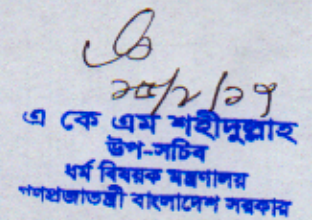 ২৫/২/১৭
এ কে এম শহীদুল্লাহ
উপ-সচিব
ধর্ম বিষয়ক মন্ত্রণালয়
গণপ্রজাতন্ত্রী বাংলাদেশ সরকার